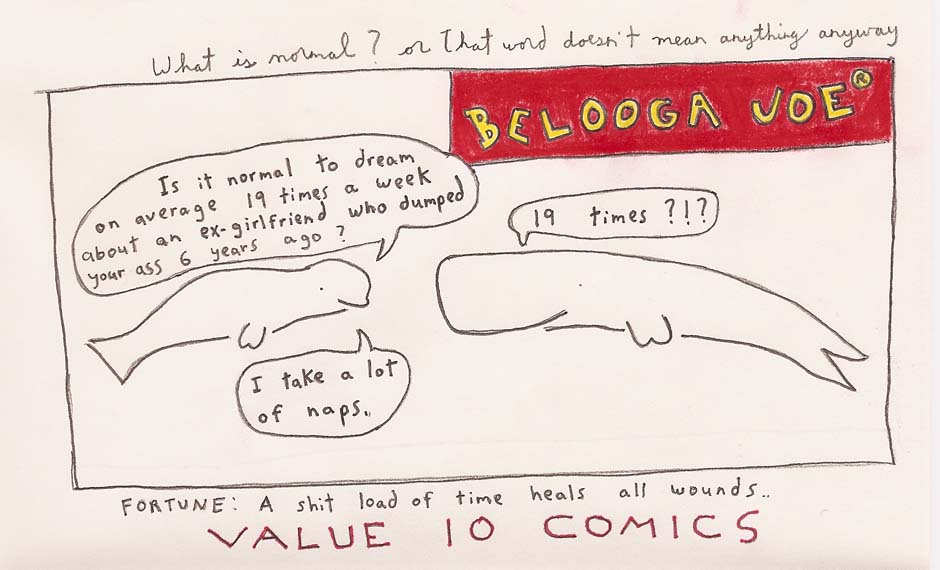 What is normal? or That word doesn't mean anything anyway
BELOOGA JOE®
Is it normal to dream
on average 19 times a week
about an ex-girlfriend who dumped
your ass 6 years ago?
19 times?!?
I take a lot
of naps..
FORTUNE: A shit load of time heals all wounds..
VALUE 10 COMICS